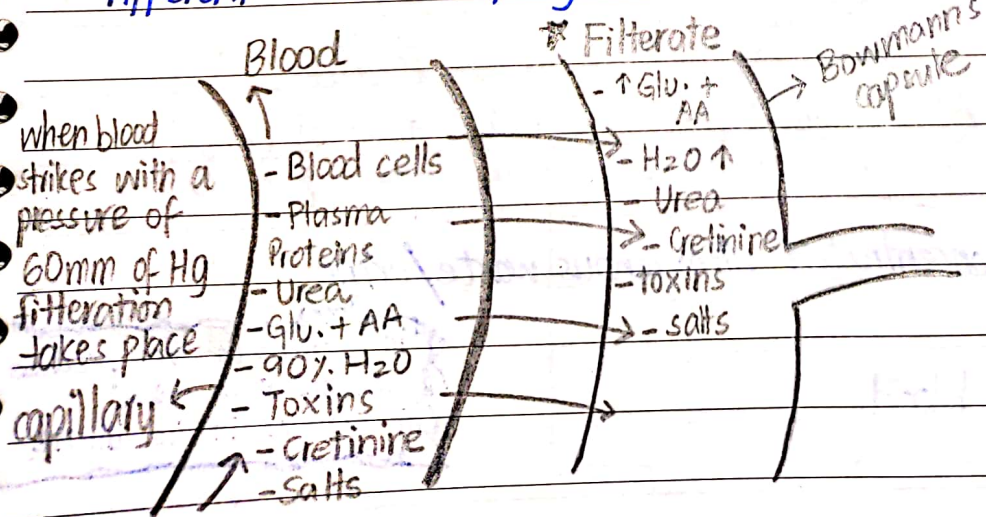 Blood
when blood
strikes with a
pressure of
60mm of Hg
fitteration
takes place
capillary
- Blood cells
- Plasma
Proteins
- Urea
- Glu. + AA
- 90% H2O
- Toxins
- Cretinire
- Salts
* Filterate
- ↑ Glu. +
AA
- H2O ↑
- Urea
- Cretinire
- Toxins
- salts
Bowmann's
capsule